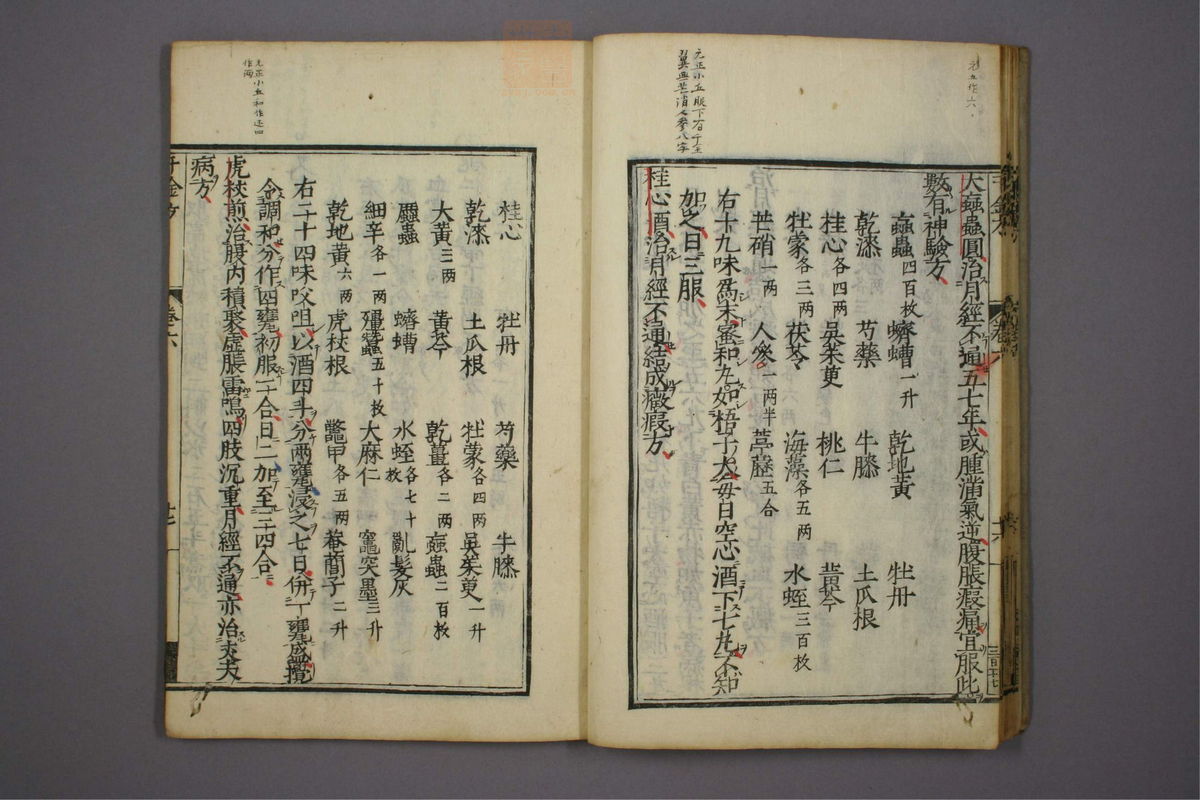 元五作六
元正小五服下有于至
翼無芒消人參八字
千金方
卷六
十六
三百十七
大䗪蟲圓治月經不通五七年或腫滿氣逆腹脹瘕痛宜服此
數有神驗方
䗪蟲四百枚 蠐螬一升 乾地黃 牡丹
乾漆 芍藥 牛膝 土瓜根
桂心各四兩 吳茱萸 桃仁 黃芩
牡蒙各三兩 茯苓 海藻各五兩 水蛭三百枚
芒硝一兩 人參一兩半 葶藶五合
右十九味爲末蜜和丸如梧子大每日空心酒下七丸不知
加之日三服
桂心酒治月經不通結成癥瘕方
元正小五和作還四
作兩
桂心 牡丹 芍藥 牛膝
乾漆 土瓜根 牡蒙各四兩 吳茱萸一升
大黃三兩 黃芩 乾薑各二兩 䗪蟲二百枚
䗪蟲 蠐螬 水蛭各七十枚 亂髮灰
細辛各一兩 殭蠶五十枚 大麻仁 竈突墨三升
乾地黃六兩 虎杖根 鱉甲各五兩 菴䕡子二升
右二十四味㕮咀以酒四斗分兩甕浸之七日併一甕盛攪
令調和分作四甕初服二合日二加至三四合
虎杖煎治腹內積聚虛脹雷鳴四肢沉重月經不通亦治丈夫
病方
千金方
卷六